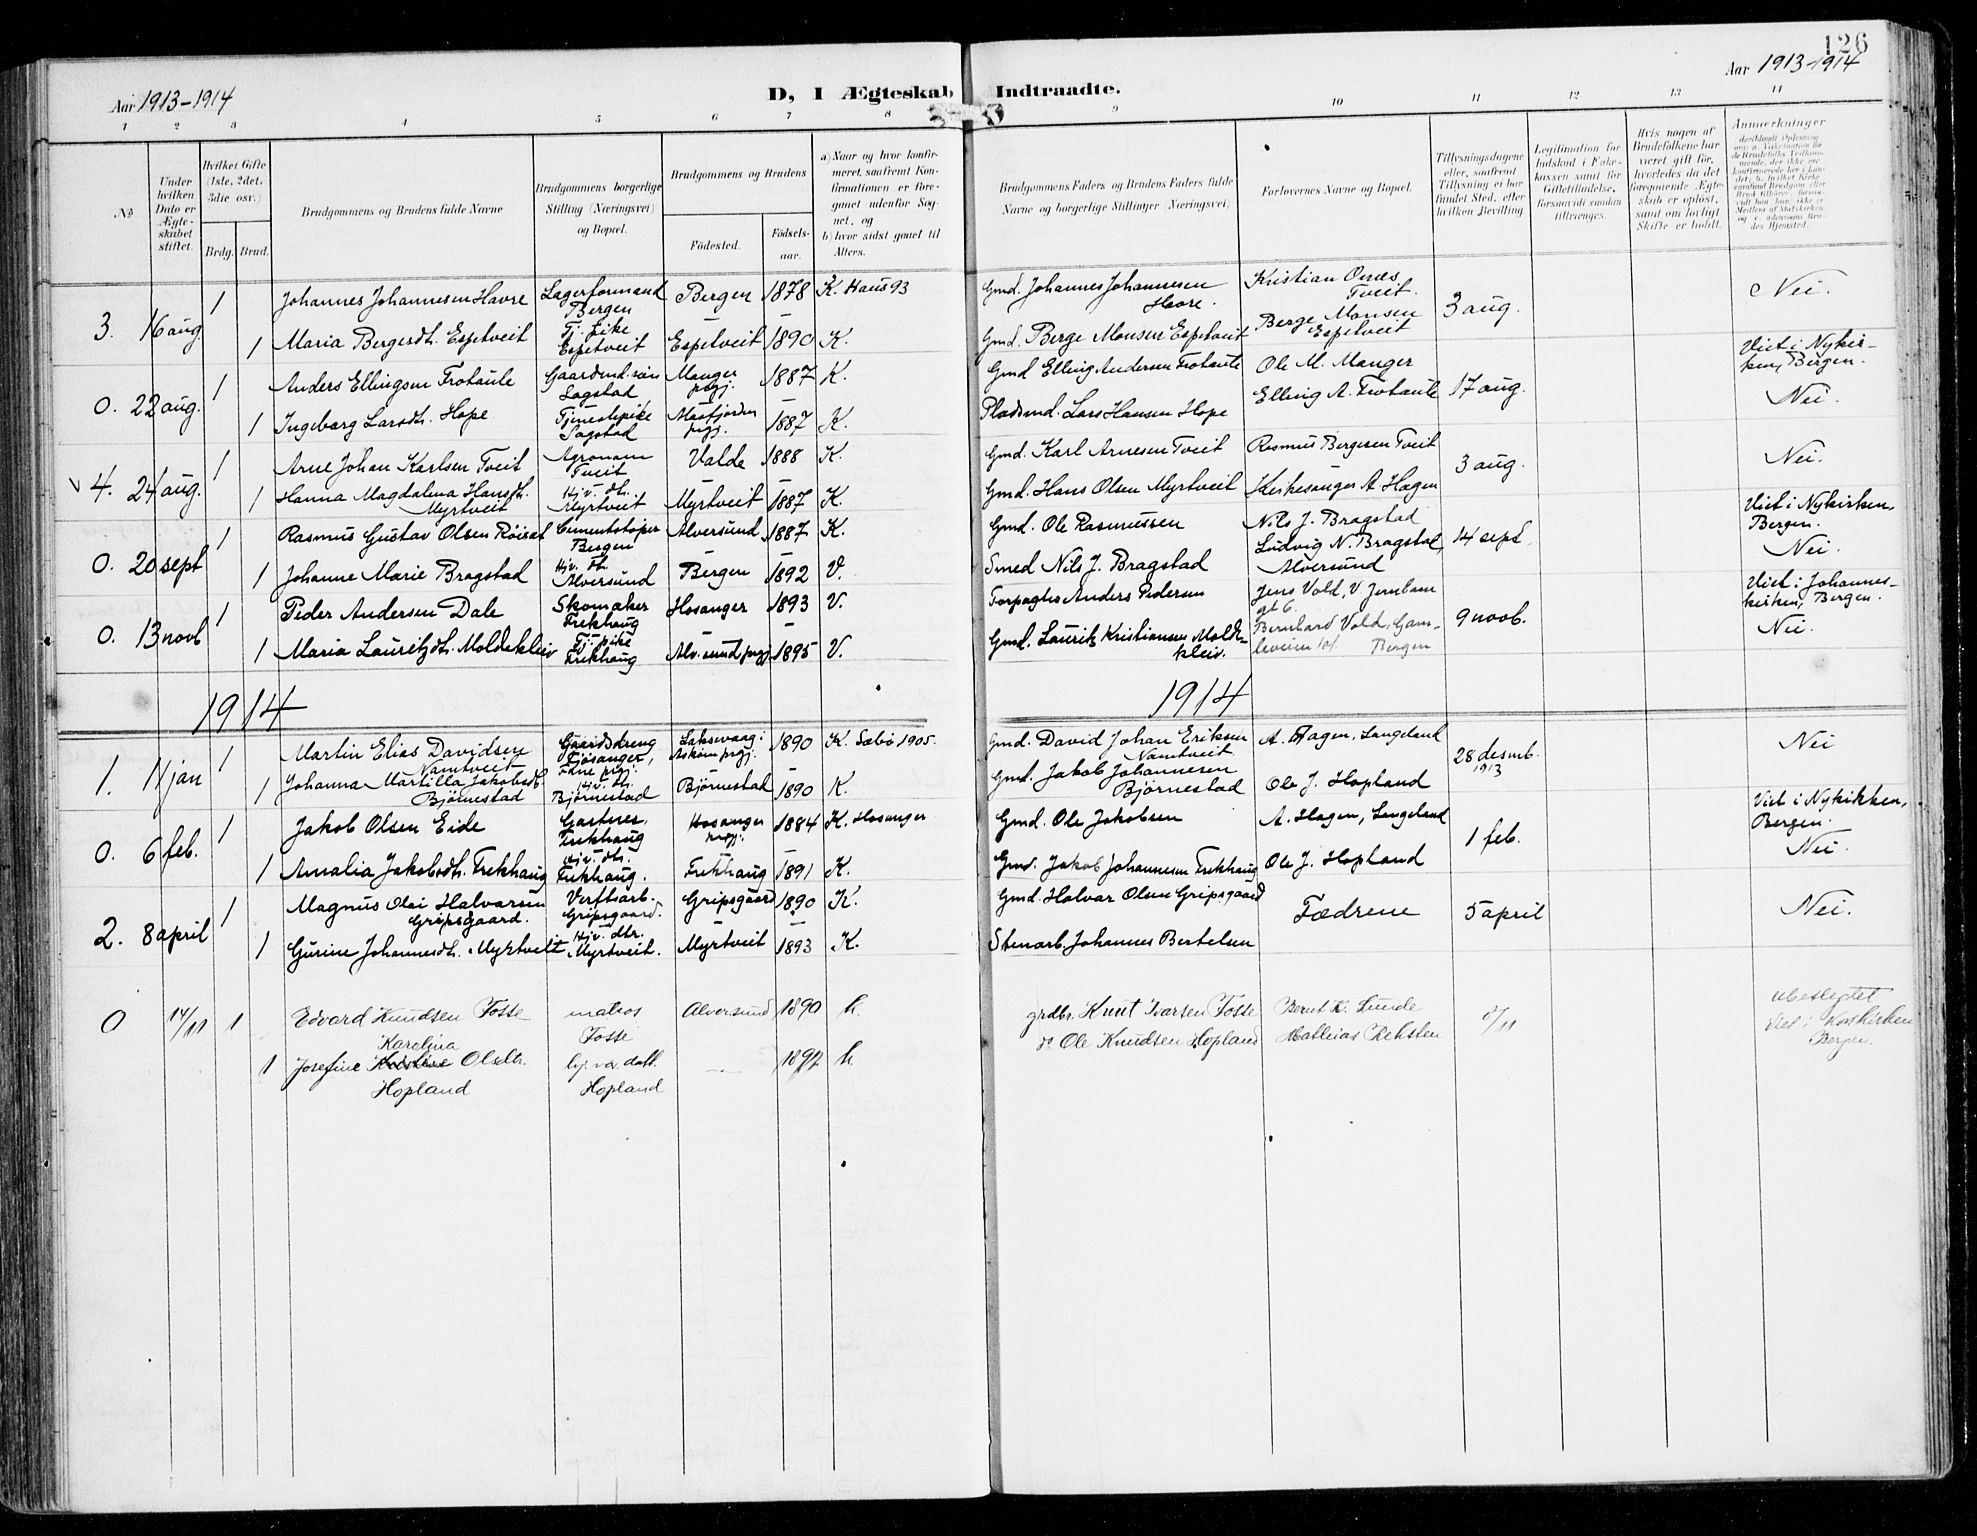 126
Aar 1913-1914
D, I Ægteskab Indtraadte.
Aar 1913-1914
1 2 3 4 5 6 7 8 9 10 11 12 13 14
No
Under hvilken Dato er Ægteskabet stiftet.
Hvilket Gifte (1ste, 2det, 3die osv.)
Brdg. Brud.
Brudgommens og Brudens fulde Navne
Brudgommens borgerlige Stilling (Næringsvei) og Bopæl.
Brudgommens og Brudens
Födested.
Födselsaar.
a) Naar og hvor konfirmeret, saafremt Konfirmationen er foregaaet udenfor Sognet, og
b) hvor sidst gaaet til Alters.
Brudgommens Faders og Brudens Faders fulde Navne og borgerlige Stillinger (Næringsvei)
Forlovernes Navne og Bopæl.
Tillysningsdagene eller, saafremt Tillysning ei har fundet Sted, efter hvilken Bevilling
Legitimation for Indskud i Enkekassen samt for Giftetilladelse, forsaavidt saadan tiltrænges.
Hvis nogen af Brudefolkene har været gift för, hvorledes da det foregaaende Ægteskab er oplöst, samt om lovligt Skifte er holdt.
Anmærkninger
3. 16 aug 1 Johannes Johannesen Havre Lagerformand Bergen Bergen 1878 K. Haus 93 Gmd. Johannes Johannesen Havre. Kristian Tveit. 3 aug. Nei.
1 Maria Bergesdt. Espetveit Tj. pike Espetveit Espetveit 1890 K. Gmd. Berge Monsen Espetveit Berge Monsen Espetveit
0. 22 aug. 1 Anders Ellingsen Trotaule Gaardmd. søn Sagstad Manger prgj. 1887 K. Gmd Elling Andersen Trotaule Ole M. Manger 17 aug. Viet i Nykirken, Bergen.
1 Ingeborg Larsdt. Hope Tjenestepike Sagstad Masfjorden prgj. 1887 K. Pladsmd. Lars Hansen Hope Elling A. Trotaule Nei.
4. 24 aug. 1 Arne Johan Karlsen Tveit Agronom Tveit Valde 1888 K. Gmd. Karl Arnesen Tveit Rasmus Bergesen Tveit 3 aug. Nei.
1 Hanna Magdalena Hansdt. Myrtveit Hjv. dt. Myrtveit Myrtveit 1887 K. Gmd. Hans Olsen Myrtveit Kirkesanger A Hagen
0. 20 sept 1 Rasmus Gustav Olsen Cementstøper Bergen Alversund 1887 K. Gmd. Ole Rasmussen Nils J. Bragstad 14 sept. Viet i Nykirken, Bergen.
1 Johanne Marie Bragstad Hjv. dt. Alversund Bergen 1892 V. Smed Nils J. Bragstad Ludvig N. Bragstad, Alversund Nei.
0. 13 novb 1 Peder Andersen Dale Skomaker Frekhaug Hosanger 1893 V. Forpagter Anders Pedersen Jens Vold, V. 9 novb. Viet i Johanneskirken, Bergen.
1 Maria Lauritzdt. Moldekleiv Tj. pike Frekhaug Alv.sund prgj 1895 V. Gmd. Lauritz Kristiansen Moldekleiv. Bernhard Vold, Bergen Nei.
1914 1914
1. 11 jan 1 Martin Elias Davidsen Namtveit Gaardsdreng Fjøsanger, Fane prgj. Laksevaag, Askøen prgj. 1890 K. Sæbø 1905. Gmd. David Johan Eriksen Namtveit A. Hagen, Langeland 28 desmb. 1913 Nei
1 Johanna Martilla Jakobsdt. Bjørnestad Hjv. dt. Bjørnestad Bjørnestad 1890 K. Gmd. Jakob Johannesen Bjørnestad Ole J. Hopland
0. 6 feb. 1 Jakob Olsen Eide Gartner, Frekhaug Hosanger prgj. 1884 K. Hosanger Gmd. Ole Jakobsen A. Hagen, Langeland 1 feb. Viet i Nykikken, Bergen.
1 Amalia Jakobsdt. Frekhaug Hjv. dt. Frekhaug. Frekhaug 1891 K. Gmd. Jakob Johannesen Frekhaug Ole J. Hopland Nei.
2. 8 april 1 Magnus Olai Halvorsen Gripsgaard. Verftsarb. Gripsgaard. Gripsgaard 1890 K. Gmd. Halvar Olsen Gripsgaard Fædrene 5 april Nei.
1 Gurine Johannesdt. Myrtveit Hjv. dtr. Myrtveit. Myrtveit 1893 K. Stenarb. Johannes Bertelsen
0 14/11 1 Edvard Knudsen Fosse matros Fosse Alversund 1890 k. grdbr. Knut Ivarsen Fosse Bernt K. Lunde 8/11 ubeslegtet
1 Josefine Karolina Olsdtr. Hopland hj.v. datt. Hopland 1892 k. do Ole Knudsen Hopland Mathias Reksten Viet i Korskirken Bergen.